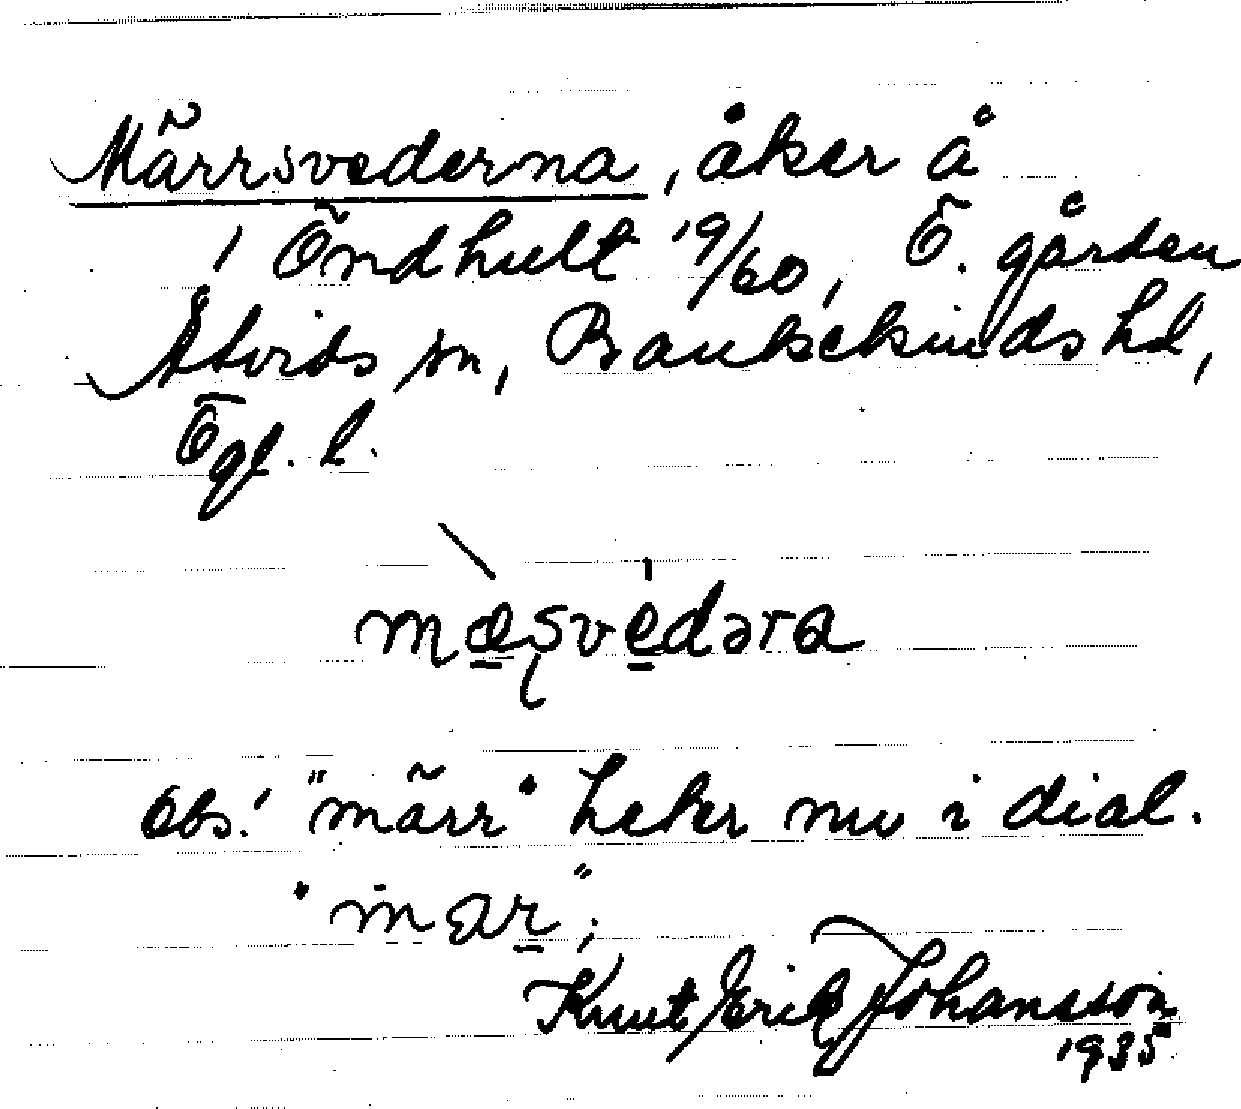 Märrsvederna, åker å
1 Öndhult 19/60, Ö. gården
Åtvids sn, Bankekinds hd,
Ögl. l.
mæșvedəra
obs! "märr" heter nu i dial.
"mar";
Knut Erik Johansson
1935